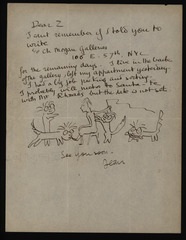 Dear Z
I cant remember if I told you to
write
c/o Morgan Galleries
106 E. 57th NYC
for the remaining days. I live in the back
The gallery left my apartment yesterday.
I had a big job packing and sorting.
I probably will motor to Santa-Fe
with Mr. Richards but the date is not set.
See you soon.